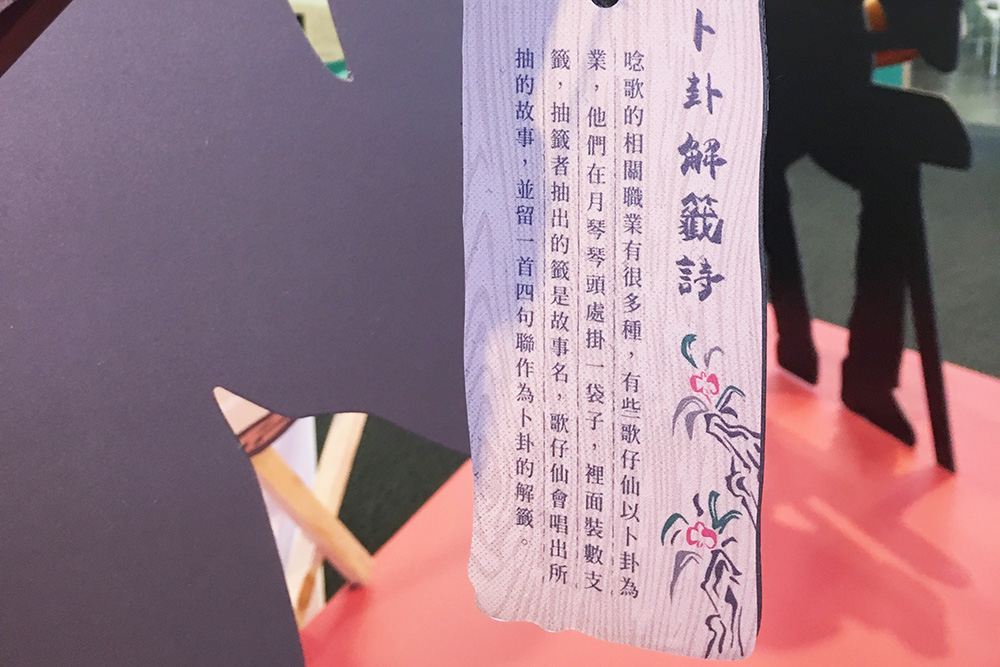 卜卦解籤詩
唸歌的相關職業有很多種，有些歌仔仙以卜卦為
業，他們在月琴琴頭處掛一袋子，裡面裝數支
籤，抽籤者抽出的籤是故事名，歌仔仙會唱出所
抽的故事，並留一首四句聯作為卜卦的解籤。